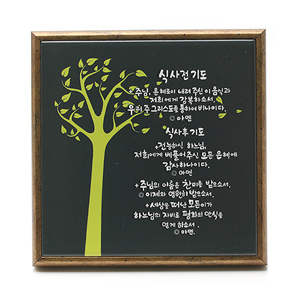 식사전 기도
+ 주님, 은혜로이 내려 주신 이 음식과
저희에게 강복하소서.
우리 주 그리스도를 통하여 비나이다.
◎ 아멘
식사후 기도
+ 전능하신 하느님,
저희에게 베풀어주신 모든 은혜에
감사하나이다.
◎ 아멘
+ 주님의 이름은 찬미를 받으소서.
◎ 이제와 영원히 받으소서.
+ 세상을 떠난 모든이가
하느님의 자비로 평화의 안식을
얻게 하소서.
◎ 아멘.